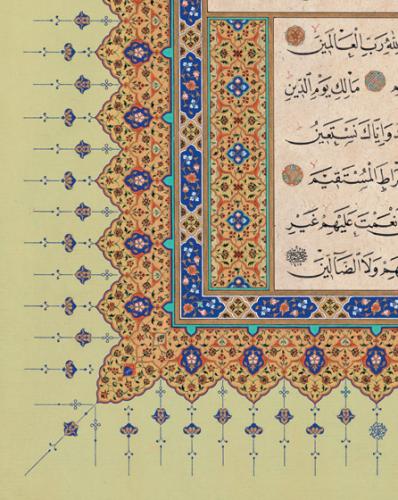 لله رب العالمين
مالك يوم الدين
وإياك نستعين
المستقيم
عليهم غير
ولا الضالين